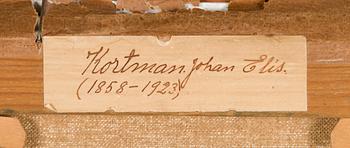 Kortman, Johan Elis.
(1858-1923)